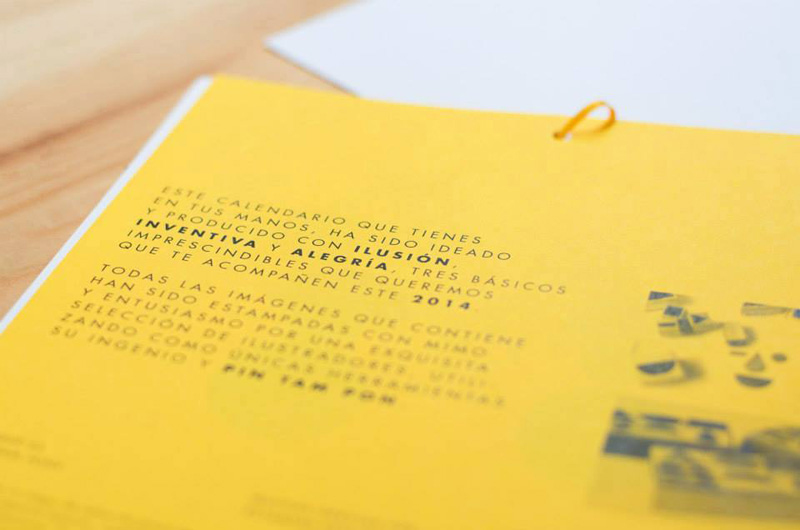 ESTE CALENDARIO QUE TIENES
EN TUS MANOS, HA SIDO IDEADO
Y PRODUCIDO CON ILUSIÓN,
INVENTIVA Y ALEGRÍA, TRES BÁSICOS
IMPRESCINDIBLES QUE QUEREMOS
QUE TE ACOMPAÑEN ESTE 2014
TODAS LAS IMÁGENES QUE CONTIENE
HAN SIDO ESTAMPADAS CON MIMO
Y ENTUSIASMO POR UNA EXQUISITA
SELECCIÓN DE ILUSTRADORES, UTILI-
ZANDO COMO ÚNICAS HERRAMIENTAS
SU INGENIO Y PIN TAM PON